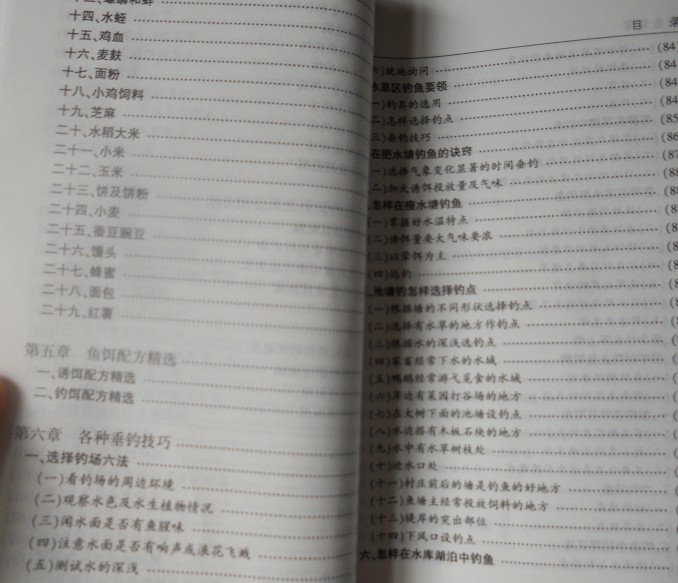 十四、水蛭
十五、鸡血
十六、麦麸
十七、面粉
十八、小鸡饲料
十九、芝麻
二十、水稻大米
二十一、小米
二十二、玉米
二十三、饼及饼粉
二十四、小麦
二十五、蚕豆豌豆
二十六、馒头
二十七、蜂蜜
二十八、面包
二十九、红薯
第五章 鱼饵配方精选
一、诱饵配方精选
二、钓饵配方精选
第六章 各种垂钓技巧
一、选择钓场六法
(一)看钓场的周边环境
(二)观察水色及水生植物情况
(三)闻水面是否有鱼腥味
(四)注意水面是否有响声或浪花飞溅
(五)测试水的深浅
目 录
六)就地询问 (84
水草区钓鱼要领 (84
一)钓具的选用 (84
二)怎样选择钓点 (85
三)垂钓技巧 (86
在肥水塘钓鱼的诀窍 (87
一)选择气象变化显著的时间垂钓 (8
二)加大诱饵投放量及气味 (8
怎样在瘦水塘钓鱼 (8
(一)掌握好水温特点 (8
(二)诱饵量要大气味要浓 (8
(三)以荤饵为主 (8
(四)远钓 (8
池塘钓怎样选择钓点 (8
(一)根据塘的不同形状选择钓点 (
(二)选择有水草的地方作钓点 (
(三)根据水的深浅选钓点 (
(四)家畜经常下水的水域 (
(五)鸭鹅经常游弋觅食的水域 (
(六)岸边有菜园打谷场的地方 (
(七)在大树下面的池塘设钓点 (
(八)水边搭有木板石块的地方 (
(九)水中有水草树枝处 (
(十)进水口处
(十一)村庄前后的塘是钓鱼的好地方 (
(十二)鱼塘主经常投放饲料的地方 (
(十三)堤岸的突出部位 (
(十四)下风口设钓点
六、怎样在水库湖泊中钓鱼